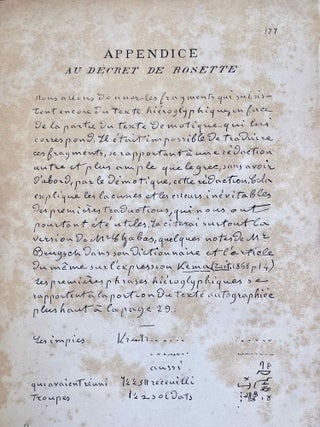 177
APPENDICE
AU DÉCRET DE ROSETTE
Nous allons donner les fragments qui subsis-
tent encore du texte hiéroglyphique, en face
de la partie du texte démotique qui lui
correspond. Il était impossible de traduire
ces fragments, se rapportant à une rédaction
autre et plus ample que le grec, sans avoir
d'abord, par le démotique, cette rédaction. Cela
explique les lacunes et les erreurs inévitables
des premières traductions, qui nous ont
pourtant été utiles. Je citerai surtout la
version de Mr Chabas, quelques notes de Mr
Brugsch dans son dictionnaire et l'article
du même sur l'expression Kema (Zeit. 1868 p 14)
Les premières phrases hiéroglyphiques se
rapportent à la portion du texte autographiée
plus haut à la page 29.
Les impies
aussi
qui avaient réuni recueilli
Troupes soldats